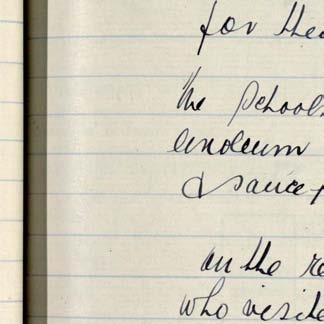 for the
the School
linoleum
& sauce
on the re
who visite